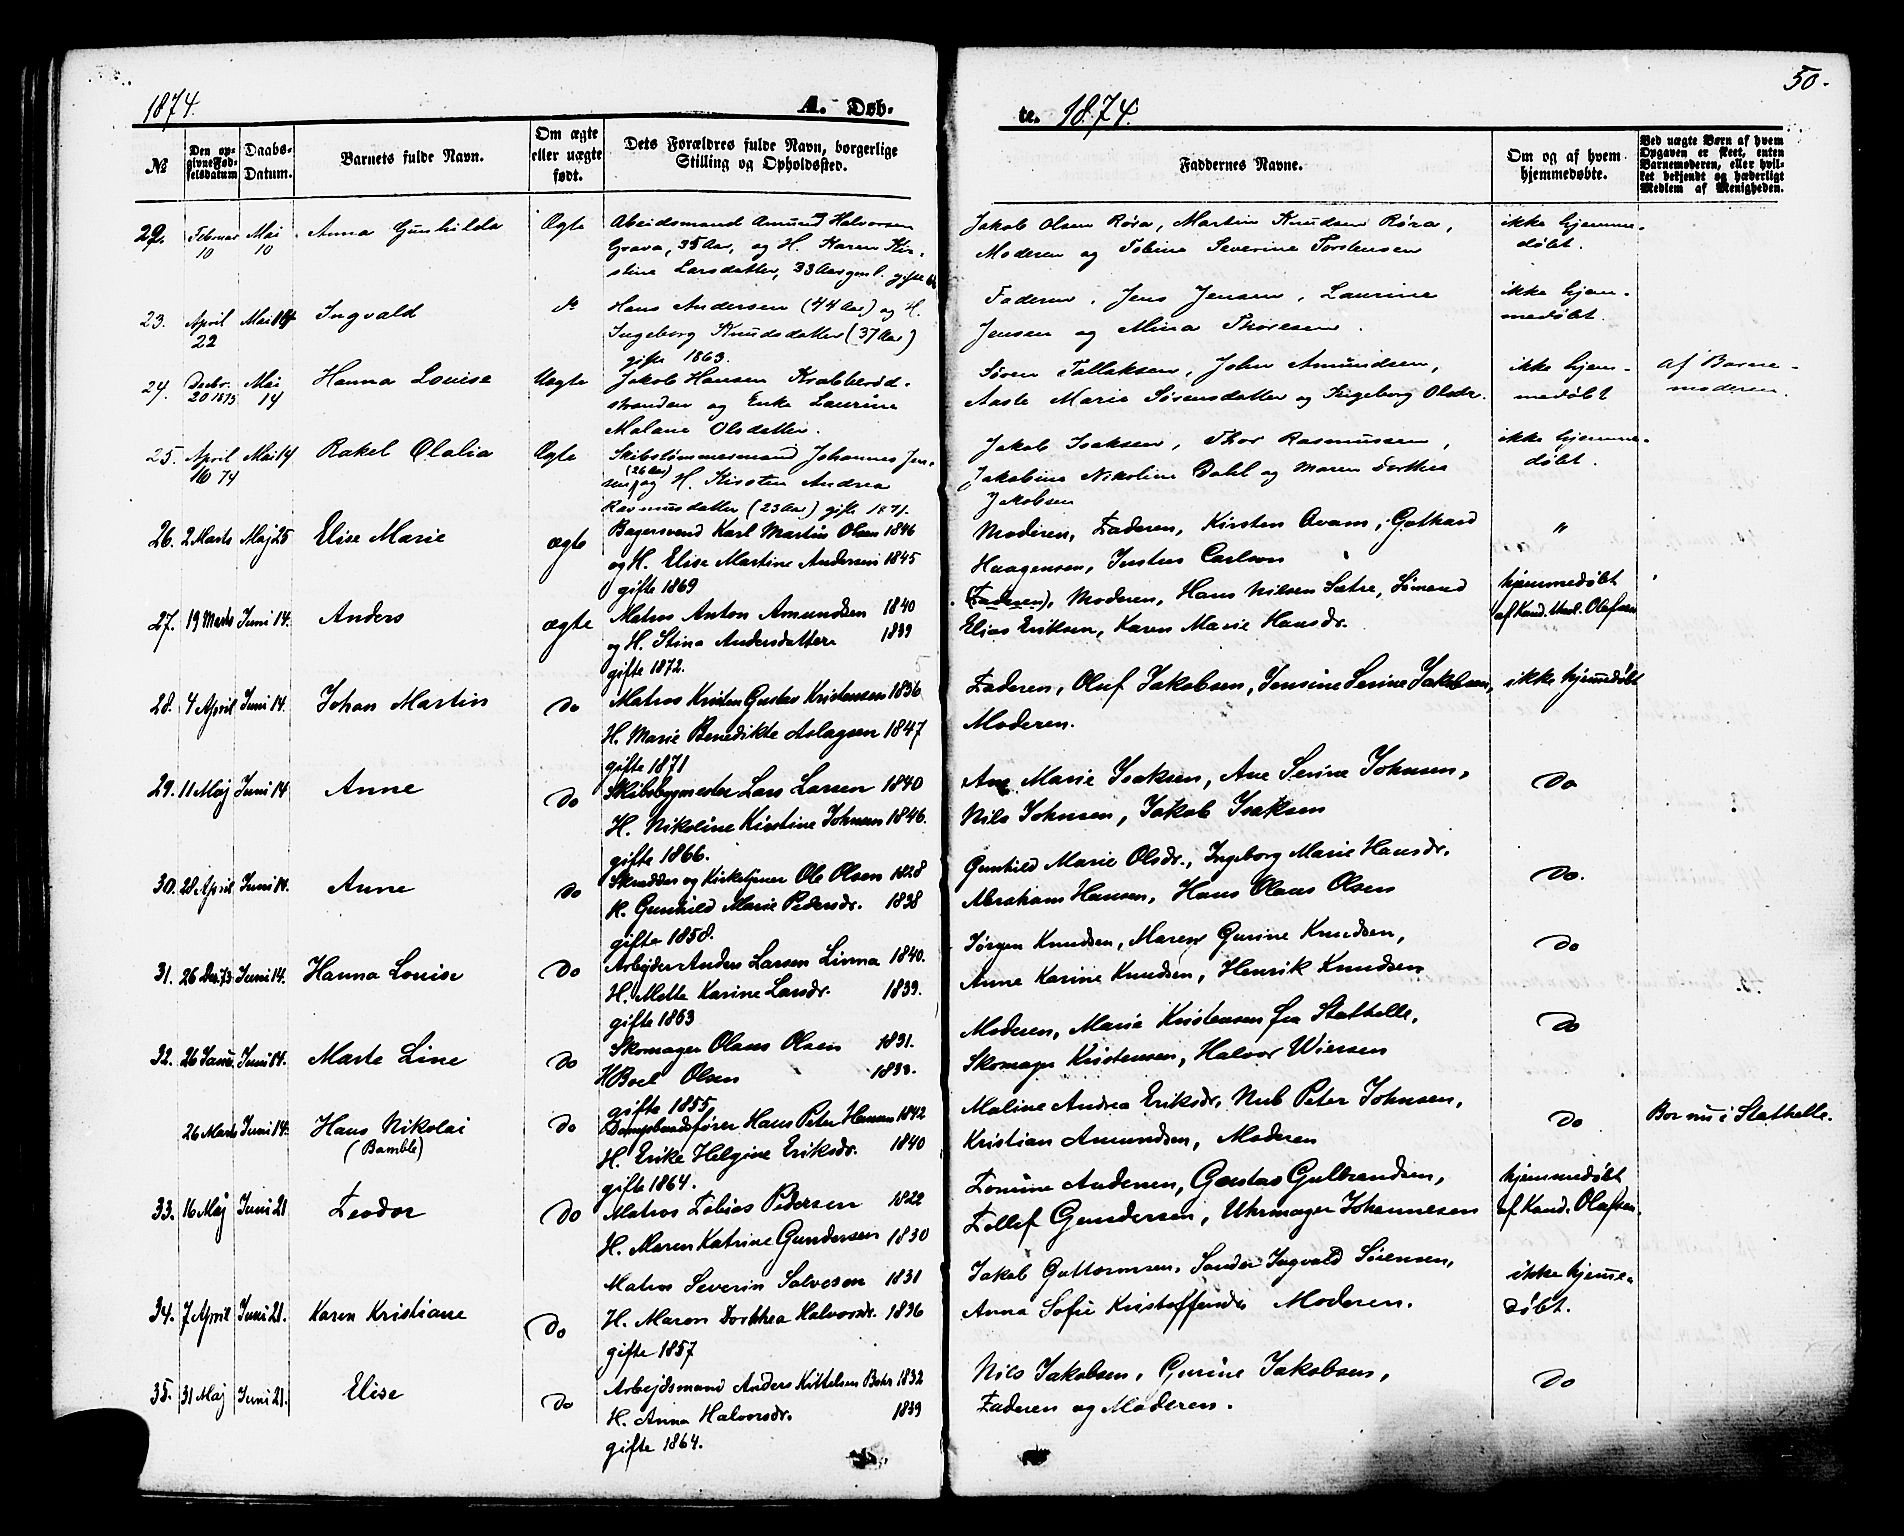 1874. A. Døb-
te. 1874. 50.
№ Den opgivne Fødselsdatum Daabs-Datum. Barnets fulde Navn. Om ægte eller uægte født. Dets Forældres fulde Navn, borgerlige Stilling og Opholdssted. Faddernes Navne. Om og af hvem hjemmedøbte. Ved uægte Børn af hvem Opgaven er skeet, enten Barnemoderen, eller hvilket bekjendt og hæderligt Medlem af Menigheden.
22. Februar 10 Mai 10 Anna Gunhilda Ægte Abeidsmand Amund Halvorsen
Grava, 35 Aar, og H. Karen Kir-
stine Larsdatter, 33 Aar gml. gifte
Jakob Olsen Røra, Martin Knudsen Røra,
Moderen og Tobine Severine Torstensen
ikke hjemme-
døbt.
23. April 22 Mai 14 Ingvald do Hans Andersen (44 Aar) og H.
Ingeborg Knudsdatter (37 Aar)
gifte 1863.
Faderen, Jens Jensen, Laurine
Jensen og Mina Thoresen.
ikke hjem-
medøbt.
24. Decbr. 20 1873 Mai 14 Hanna Louise Uægte Jakob Hansen Krabberød-
stranden og Enke Laurine
Malane Olsdatter.
Søren Tallaksen, John Amundsen,
Aaste Marie Sørensdatter og Ingeborg Olsdr.
ikke hjem-
medøbt
af Barne-
moderen.
25. April 10 74 Mai 14 Rakel Olalia Ægte Skibstømmermand Johannes Jen-
sen (26 Aar) og H. Kirsten Andrea
Rasmusdatter (23 Aar) gift 1871.
Jakob Isaksen, Thor Rasmussen,
Jakobine Nikoline Dahl og Maren Dorthea
Jakobsen
ikke hjemme-
døbt.
26. 2 Marts Maj 25 Elise Marie ægte Bagersvend Karl Martin Olsen 1846
og H. Elise Martine Andersen 1845
gifte 1869
Moderen, Faderen, Kirsten Avam, Gothard
Haagensen, Justus Carlson
"
27. 19 Marts Juni 14. Anders ægte Matros Anton Amundsen 1840
og H. Stina Andersdatter 1839
gifte 1872.
(Faderen), Moderen, Hans Nilsen Sætre, Simend
Elias Eriksen, Karen Marie Hansdr.
hjemmedøbt
af Kand. Olafsen
28. 4 April Juni 14. Johan Martin do Matros Kristen Gustav Kristensen 1836
H. Marie Benedikte Aslagsen 1847
gifte 1871
Faderen, Oluf Jakobsen, Jensine Serine Jakobsen,
Moderen.
ikke hjemdøbt
29. 11 Maj Juni 14 Anne do Skibsbygmester Lars Larsen 1840
H. Nikoline Kirstine Johnsen 1846.
gifte 1866.
Ane Marie Isaksen, Ane Serine Johnsen,
Nils Johnsen, Jakob Isaksen
do
30. 28 April Juni 14. Anne do Skrædder og Kirketjener Ole Olsen 1828
H. Gunhild Marie Pedersdr. 1838
gifte 1858.
Gunhild Marie Olsdr., Ingeborg Marie Hansdr.
Abraham Hansen, Hans Olaus Olsen
do.
31. 26 Dec. 73. Juni 14. Hanna Louise do Arbejder Anders Larsen Linna 1840.
H. Mette Karine Larsdr. 1839.
gifte 1863
Jørgen Knudsen, Maren Gurine Knudsen,
Anne Karine Knudsen, Henrik Knudsen
do
32. 26 Janu. Juni 14. Marte Line do Skomager Olaus Olsen 1831.
H Boel Olsen 1833.
gifte 1855
Moderen, Marie Kristensen fra Stathelle,
Skomager Kristensen, Halvor Wiersen
do
26 Marts Juni 14. Hans Nikolai do Dampbaadfører Hans Peter Hansen 1842
(Bamble) H. Erike Helgine Eriksdr. 1840
gifte 1864.
Maline Andrea Eriksdr. Peter Johnsen,
Kristian Amundsen, Moderen
do Bor nu i Stathelle.
33. 16 Maj Juni 21 Teodor do Matros Tobias Pedersen 1822
H. Maren Katrine Gundersen 1830
Andersen, Gustav Gulbrandsen,
Tellef Gundersen, Uhrmager Johannesen
hjemmedøbt
af Kand. Olafsen.
34. 7 April Juni 21. Karen Kristiane do Matros Severin Salvesen 1831
H. Maren Dorthea Halvorsdr. 1836
gifte 1857
Jakob Guttormsen, Sander Ingvald Sørensen,
Anna Sofie Kristoffersdr Moderen.
ikke hjemme-
døbt.
35. 31 Maj Juni 21. Elise do Arbejdsmand Anders Kittelsen 1832
H. Anna Halvorsdr. 1839
gifte 1864.
Nils Jakobsen, Gurine Jakobsen,
Faderen og Moderen.
do